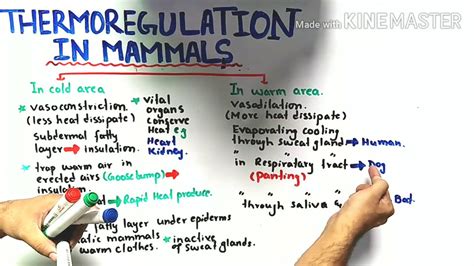 THERMOREGULATION
IN MAMMALS
Made with KINEMASTER
In cold area
* vasoconstriction.
(less heat dissipate)
Subdermal fatty
layer → insulation.
* trap warm air in
erected airs (Goosebump) →
insulation
→ Rapid Heat produce.
fatty layer under epiderms
atic mammals
warm clothes.
* vital
organs
conserve
Heat eg
Heart
Kidney.
* inactive
of sweat glands.
In warm area.
vasodilation.
(More heat dissipate)
Evaporating cooling
through sweat glands → Human.
" in Respiratory tract → Dog
(Panting)
" " " "
through saliva